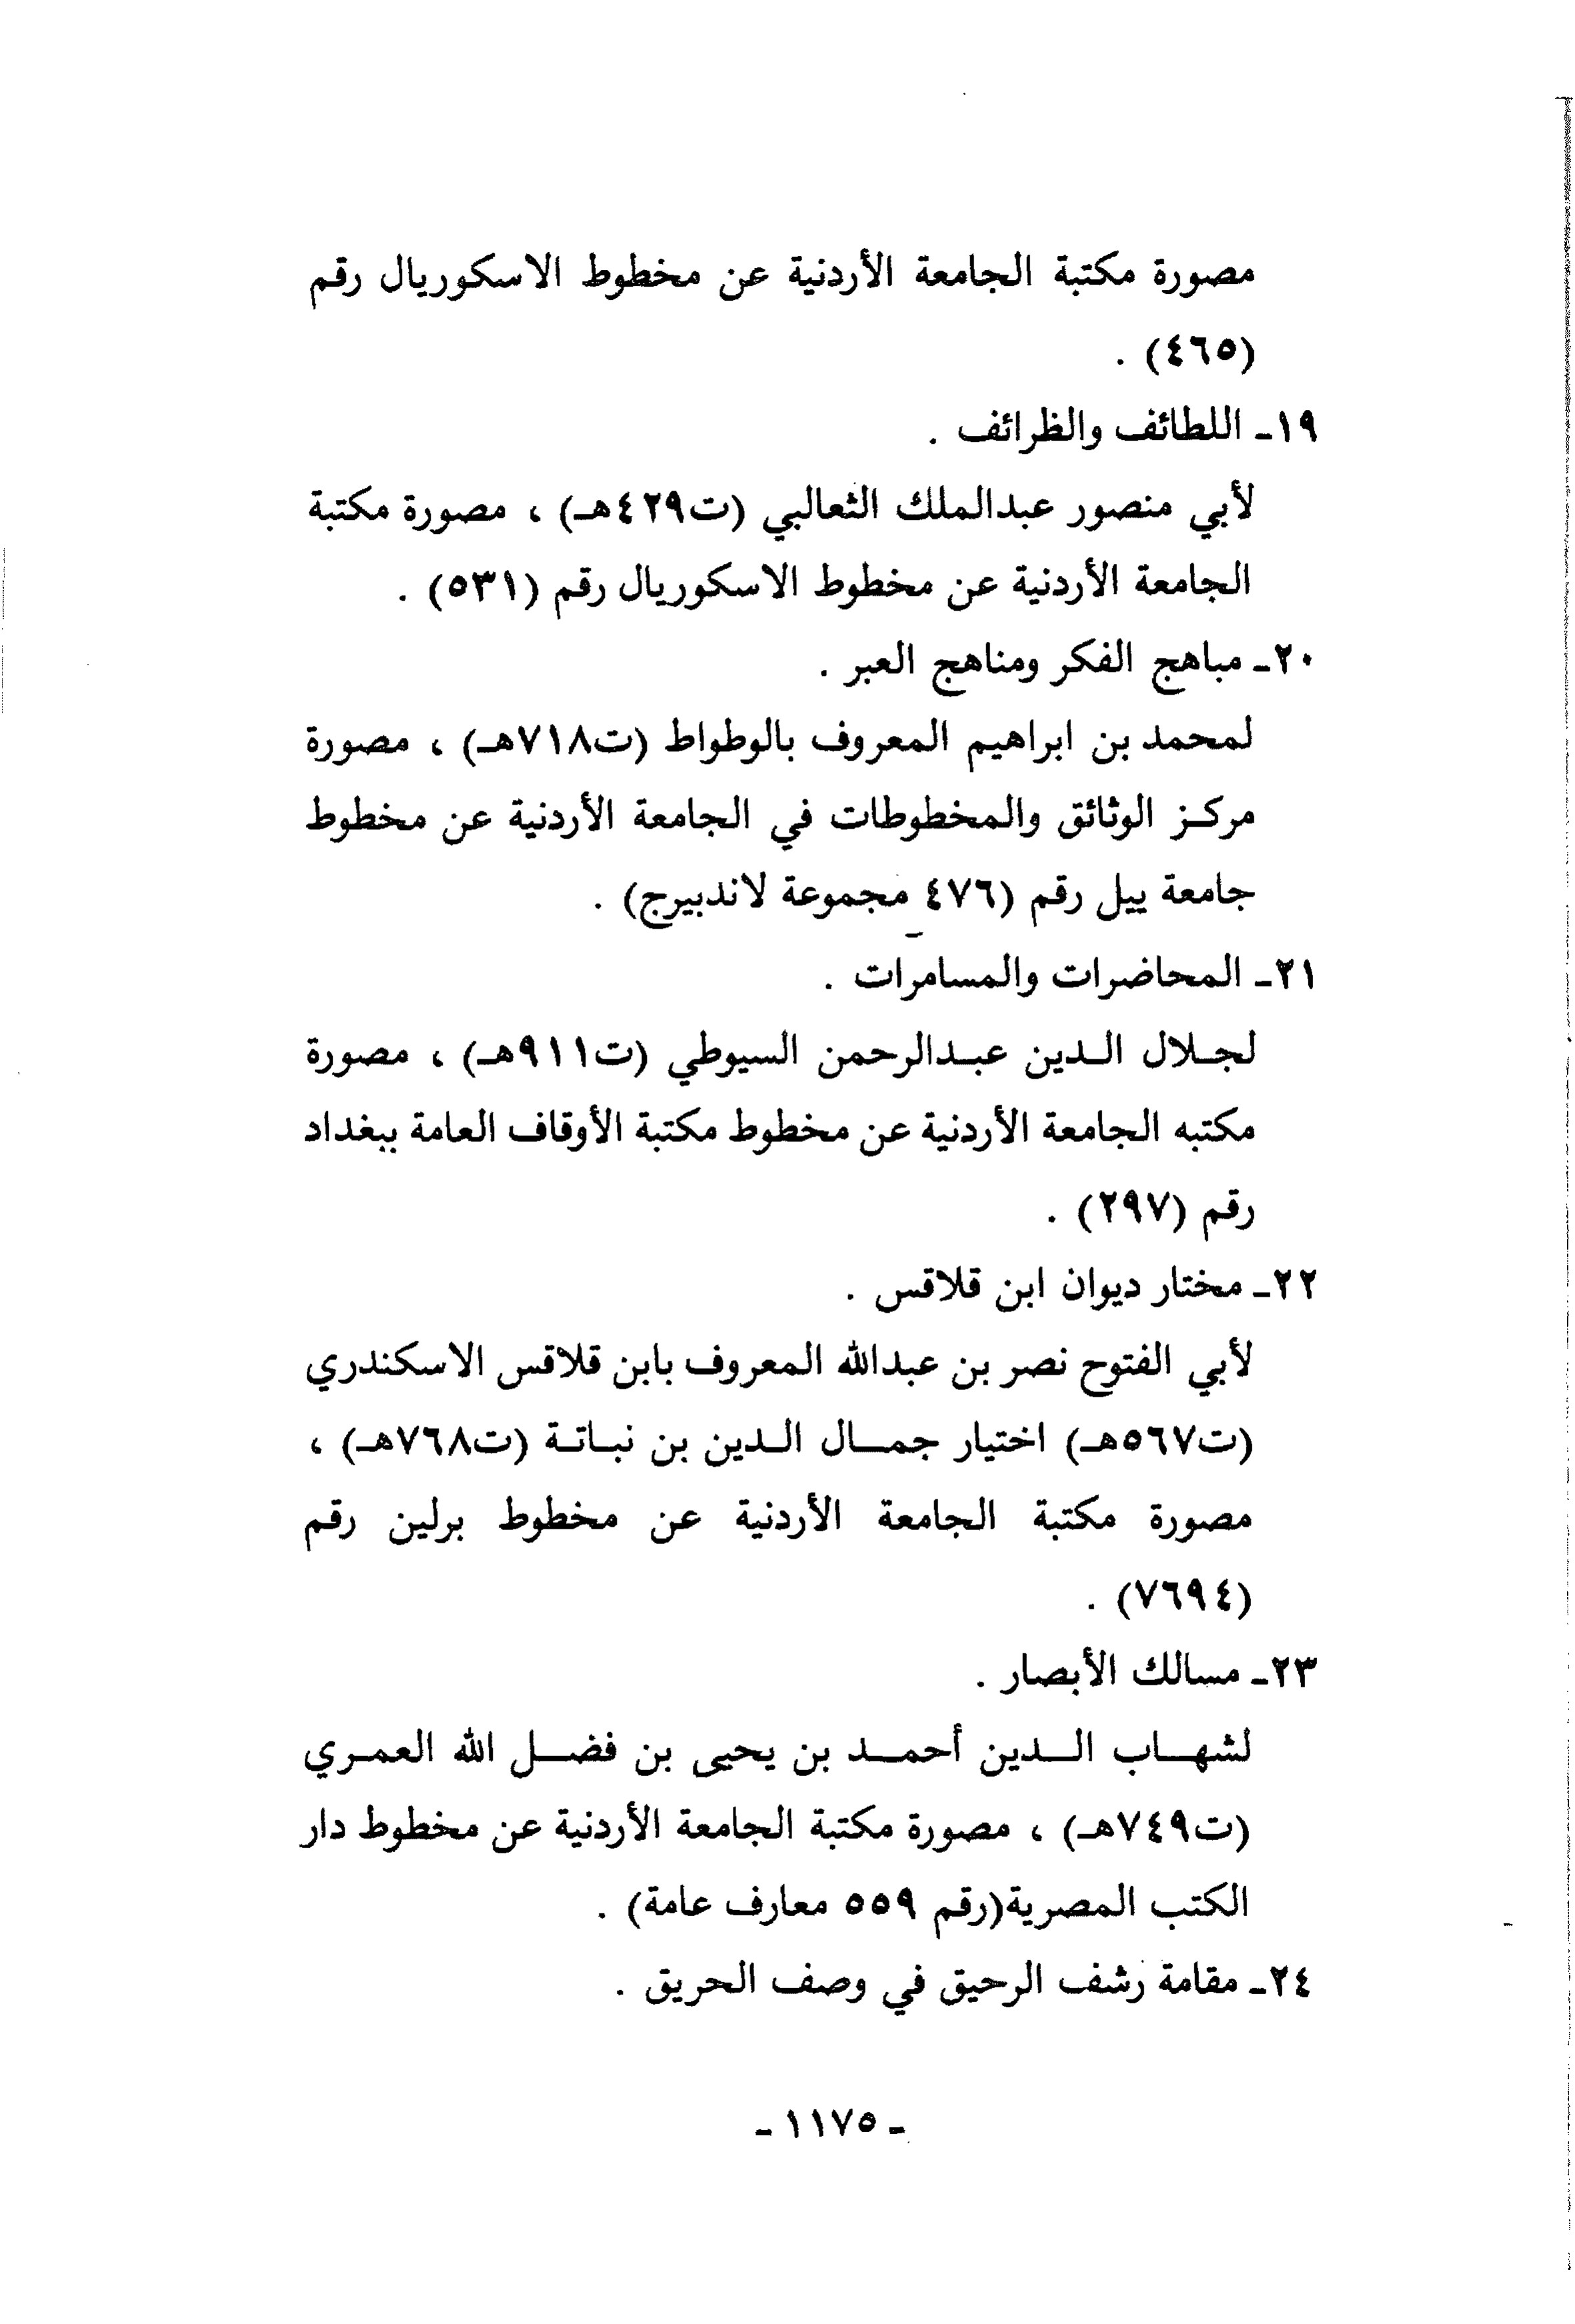 مصورة مكتبة الجامعة الأردنية عن مخطوط الاسكوريال رقم
(٤٦٥) .
١٩ـ اللطائف والظرائف .
لأبي منصور عبدالملك الثعالبي (ت٤٢٩هـ) ، مصورة مكتبة
الجامعة الأردنية عن مخطوط الاسكوريال رقم (٥٣١) .
٢٠ـ مباهج الفكر ومناهج العبر .
لمحمد بن ابراهيم المعروف بالوطواط (ت٧١٨هـ) ، مصورة
مركز الوثائق والمخطوطات في الجامعة الأردنية عن مخطوط
جامعة ييل رقم (٤٧٦ مجموعة لاندبيرج) .
٢١ـ المحاضرات والمسامرات .
لجلال الدين عبدالرحمن السيوطي (ت٩١١هـ) ، مصورة
مكتبه الجامعة الأردنية عن مخطوط مكتبة الأوقاف العامة ببغداد
رقم (٢٩٧) .
٢٢ـ مختار ديوان ابن قلاقس .
لأبي الفتوح نصر بن عبدالله المعروف بابن قلاقس الاسكندري
(ت٥٦٧هـ) اختيار جمال الدين بن نباتة (ت٧٦٨هـ) ،
مصورة مكتبة الجامعة الأردنية عن مخطوط برلين رقم
(٧٦٩٤) .
٢٣ـ مسالك الأبصار .
لشهاب الدين أحمد بن يحيى بن فضل الله العمري
(ت٧٤٩هـ) ، مصورة مكتبة الجامعة الأردنية عن مخطوط دار
الكتب المصرية(رقم ٥٥٩ معارف عامة) .
٢٤ـ مقامة رشف الرحيق في وصف الحريق .
ـ ١١٧٥ ـ